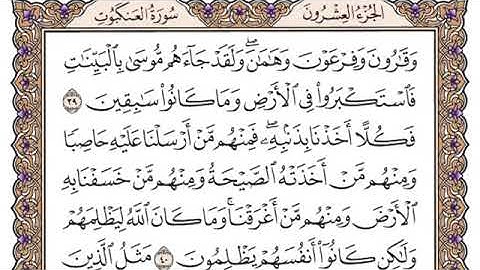 الجزء العشرون
سورة العنكبوت
وَقَـٰرُونَ وَفِرْعَوْنَ وَهَـٰمَـٰنَۖ وَلَقَدْ جَآءَهُم مُّوسَىٰ بِٱلْبَيِّنَـٰتِ
فَٱسْتَكْبَرُوا۟ فِى ٱلْأَرْضِ وَمَا كَانُوا۟ سَـٰبِقِينَ ٣٩
فَكُلًّا أَخَذْنَا بِذَنۢبِهِۦۖ فَمِنْهُم مَّنْ أَرْسَلْنَا عَلَيْهِ حَاصِبًا
وَمِنْهُم مَّنْ أَخَذَتْهُ ٱلصَّيْحَةُ وَمِنْهُم مَّنْ خَسَفْنَا بِهِ
ٱلْأَرْضَ وَمِنْهُم مَّنْ أَغْرَقْنَاۚ وَمَا كَانَ ٱللَّهُ لِيَظْلِمَهُمْ
وَلَـٰكِن كَانُوٓا۟ أَنفُسَهُمْ يَظْلِمُونَ ٤٠ مَثَلُ ٱلَّذِينَ